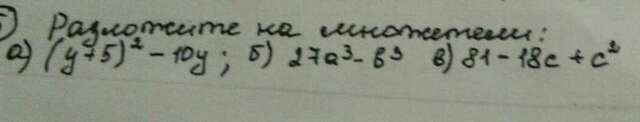 5) Разложите на множетели:
а) (y+5)² - 10y; б) 27a³ - b³ в) 81 - 18c + c²